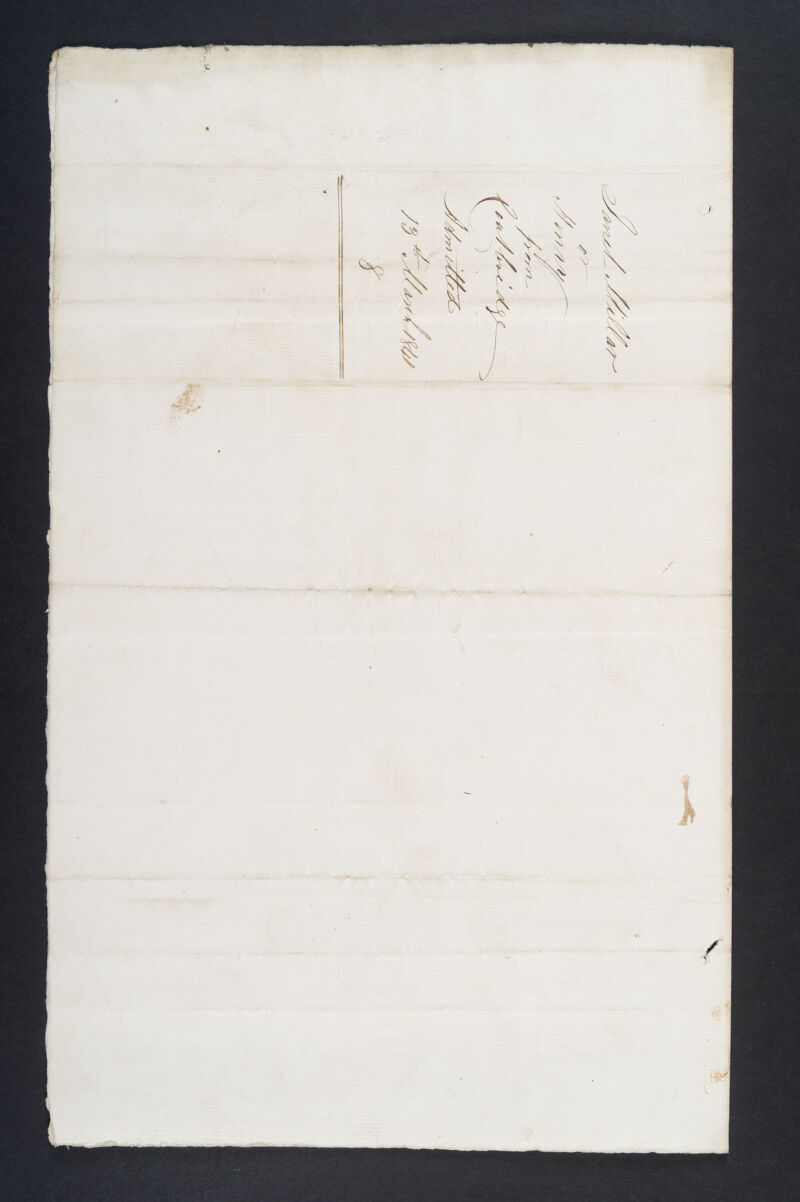 Janet Millar
or
Murray
from
Coatbridge
Admitted
13th March 1841
8